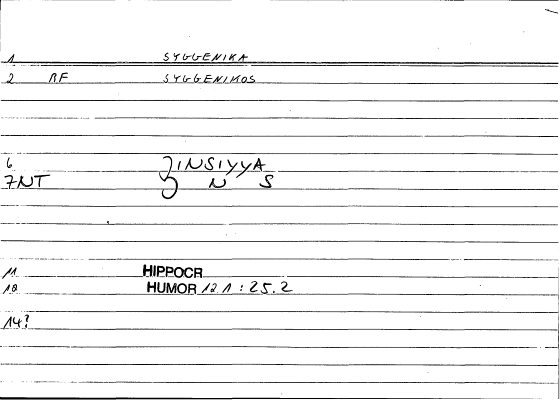 1 SYGGENIKA
2 RF SYGGENIKOS
6 ʒINSIYYA
7NT ʒ N S
11 HIPPOCR
10 HUMOR 12.1 : 25.2
14?